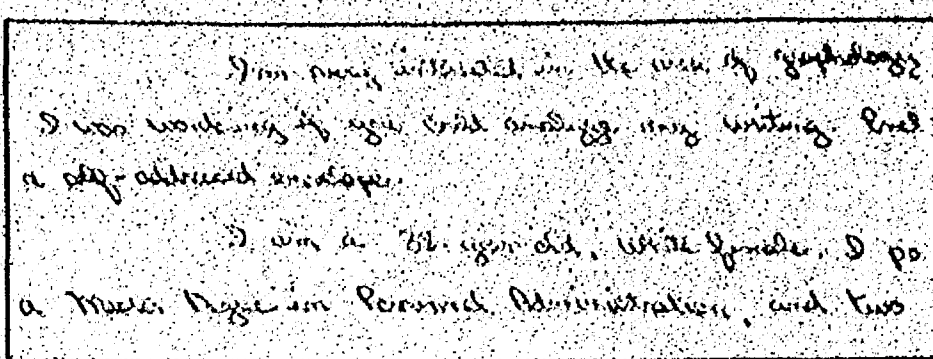 I'm very interested in the use of graphology
I was wondering if you could analyze my writing. Encl
a self-addressed envelope.
I am a year old, white female. I po
a Master Degree in Personnel Administration, and two